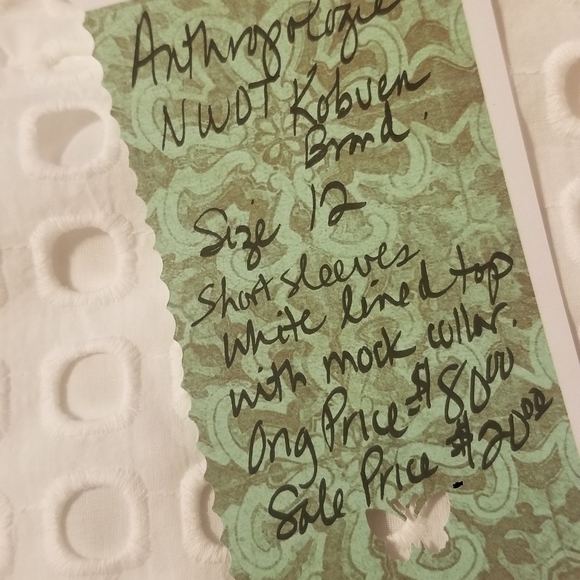 Anthropologie
NWOT Kobven
Brand.
Size 12
Short sleeves
White lined top
with mock collar.
Orig Price-$80.00
Sale Price $20.00